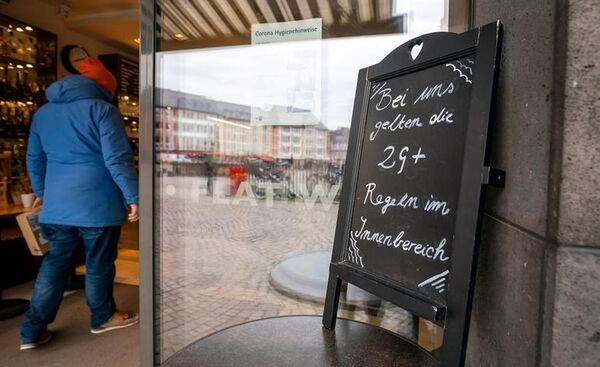 Corona Hygienehinweise
Bei uns
gelten die
2G+
Regeln im
Innenbereich